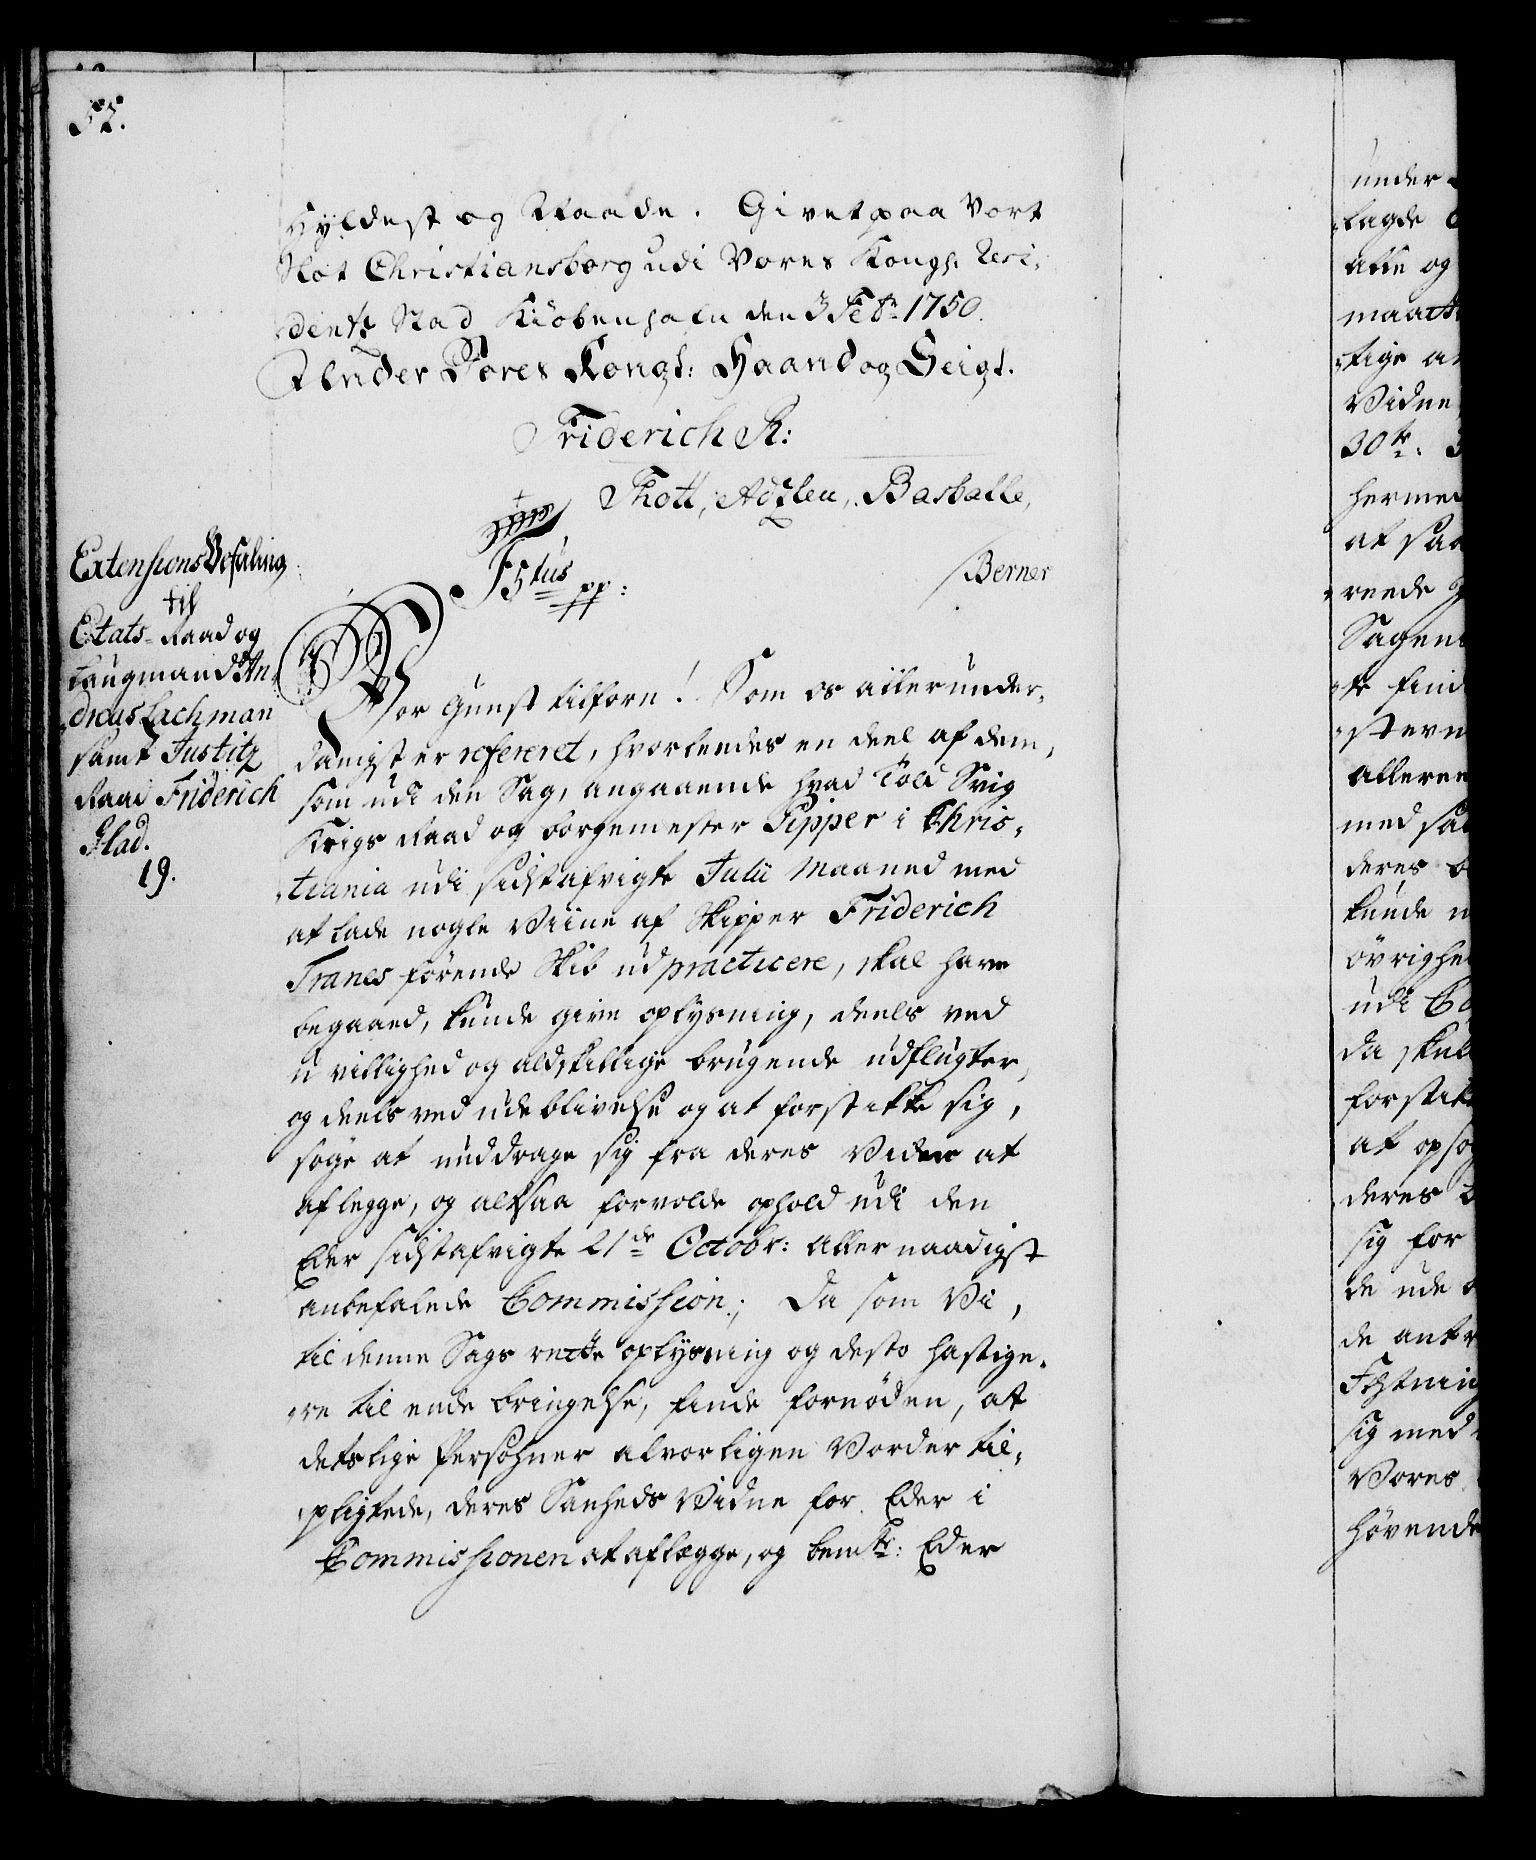 52.
Hyldest og Naade. Givet paa Vort
Slot Christiansborg udi Vores Kongl. Resi-
dentz Stad Kiöbenhafn den 3 Febr. 1750.
Under Vores Kongl: Haand og Seigl.
Friderich R:
Thott, Holzlen, Barballe,
Berner
F 5tus pp:
Extensions Befaling
til
Etats-Raad og
Laugmand An-
dreas Lachman
samt Justitz
Raad Friderich
Glad.
19.
Vor Gunst tilforn! Som os allerunder-
danigst er refereret, hvorledes en deel af dem,
som udi den Sag, angaaende hvad Told Svig
Krigs Raad og borgemester Pipper i Chris-
tiania udi sidstafvigte Julii Maaned med
at lade nogle Viine af Skipper Friderich
Tranes förende Skib udpracticere, skal have
begaaed, kunde give oplysning, deels ved
u villighed og aldskillige brugende udflugter,
og deels ved udeblivelse og at forstikke sig,
söge at unddrage sig fra deres Vidne at
aflegge, og altsaa forvolde ophold udi den
Eder sidstafvigte 21de Octobr: allernaadigst
anbefalede Commission; Da som Vi,
til denne Sags rette oplysning og desto hastige-
re til ende bringelse, finde fornöden, at
detslige Persohner alvorligen Vorder til-
pligtede, deres Sanheds Vidne for Eder i
Commissionen at aflægge, og bemte: Eder
under-
lagde
alle og
maatte
tige
Vidne
30te:
hermed
at saa
reende
Sagens
te
stevn
alleree
med saa
deres
kunde
övrighe
udi
da skul
forstik
at opsög
deres
sig for
de ude
de
Fæstning
sig med
Vores
hörende